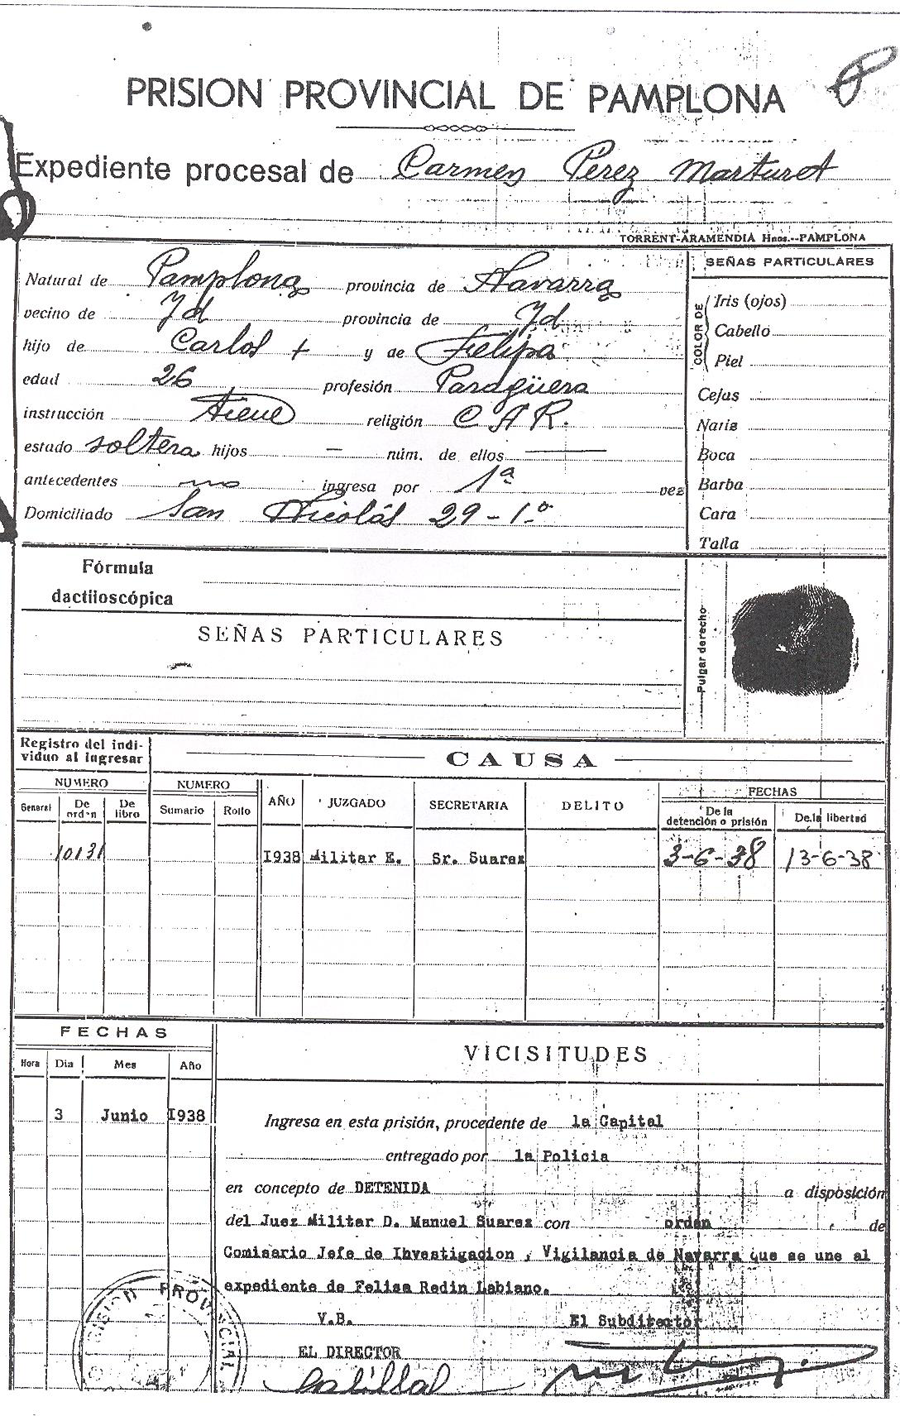 PRISION PROVINCIAL DE PAMPLONA
Expediente procesal de Carmen Pérez Marturet
TORRENT-ARAMENDIA Hnos.--PAMPLONA
Natural de Pamplona provincia de Navarra
vecino de Id provincia de Id
hijo de Carlos + y de Felipa
edad 26 profesión Paragüera
instrucción tiene religión C A R.
estado soltera hijos — núm. de ellos —
antecedentes no ingresa por 1ª vez
Domiciliado San Nicolás 29-1º
SEÑAS PARTICULARES
COLOR DE
Iris (ojos)
Cabello
Piel
Cejas
Nariz
Boca
Barba
Cara
Talla
Fórmula
dactiloscópica
SEÑAS PARTICULARES
Pulgar derecho
Registro del indi-
viduo al ingresar
CAUSA
NUMERO NUMERO AÑO JUZGADO SECRETARIA DELITO FECHAS
General De orden De libro Sumario Rollo De la detención o prisión De la libertad
10131 1938 Militar E. Sr. Suarez 3-6-38 13-6-38
FECHAS
Hora Dia Mes Año
3 Junio 1938
VICISITUDES
Ingresa en esta prisión, procedente de la Capital
entregado por la Policia
en concepto de DETENIDA a disposición
del Juez Militar D. Manuel Suarez con orden de
Comisario Jefe de Investigacion y Vigilancia de Navarra que se une al
expediente de Felisa Redin Labiano.
V.B. El Subdirector
EL DIRECTOR
PRISION PROVINCIAL